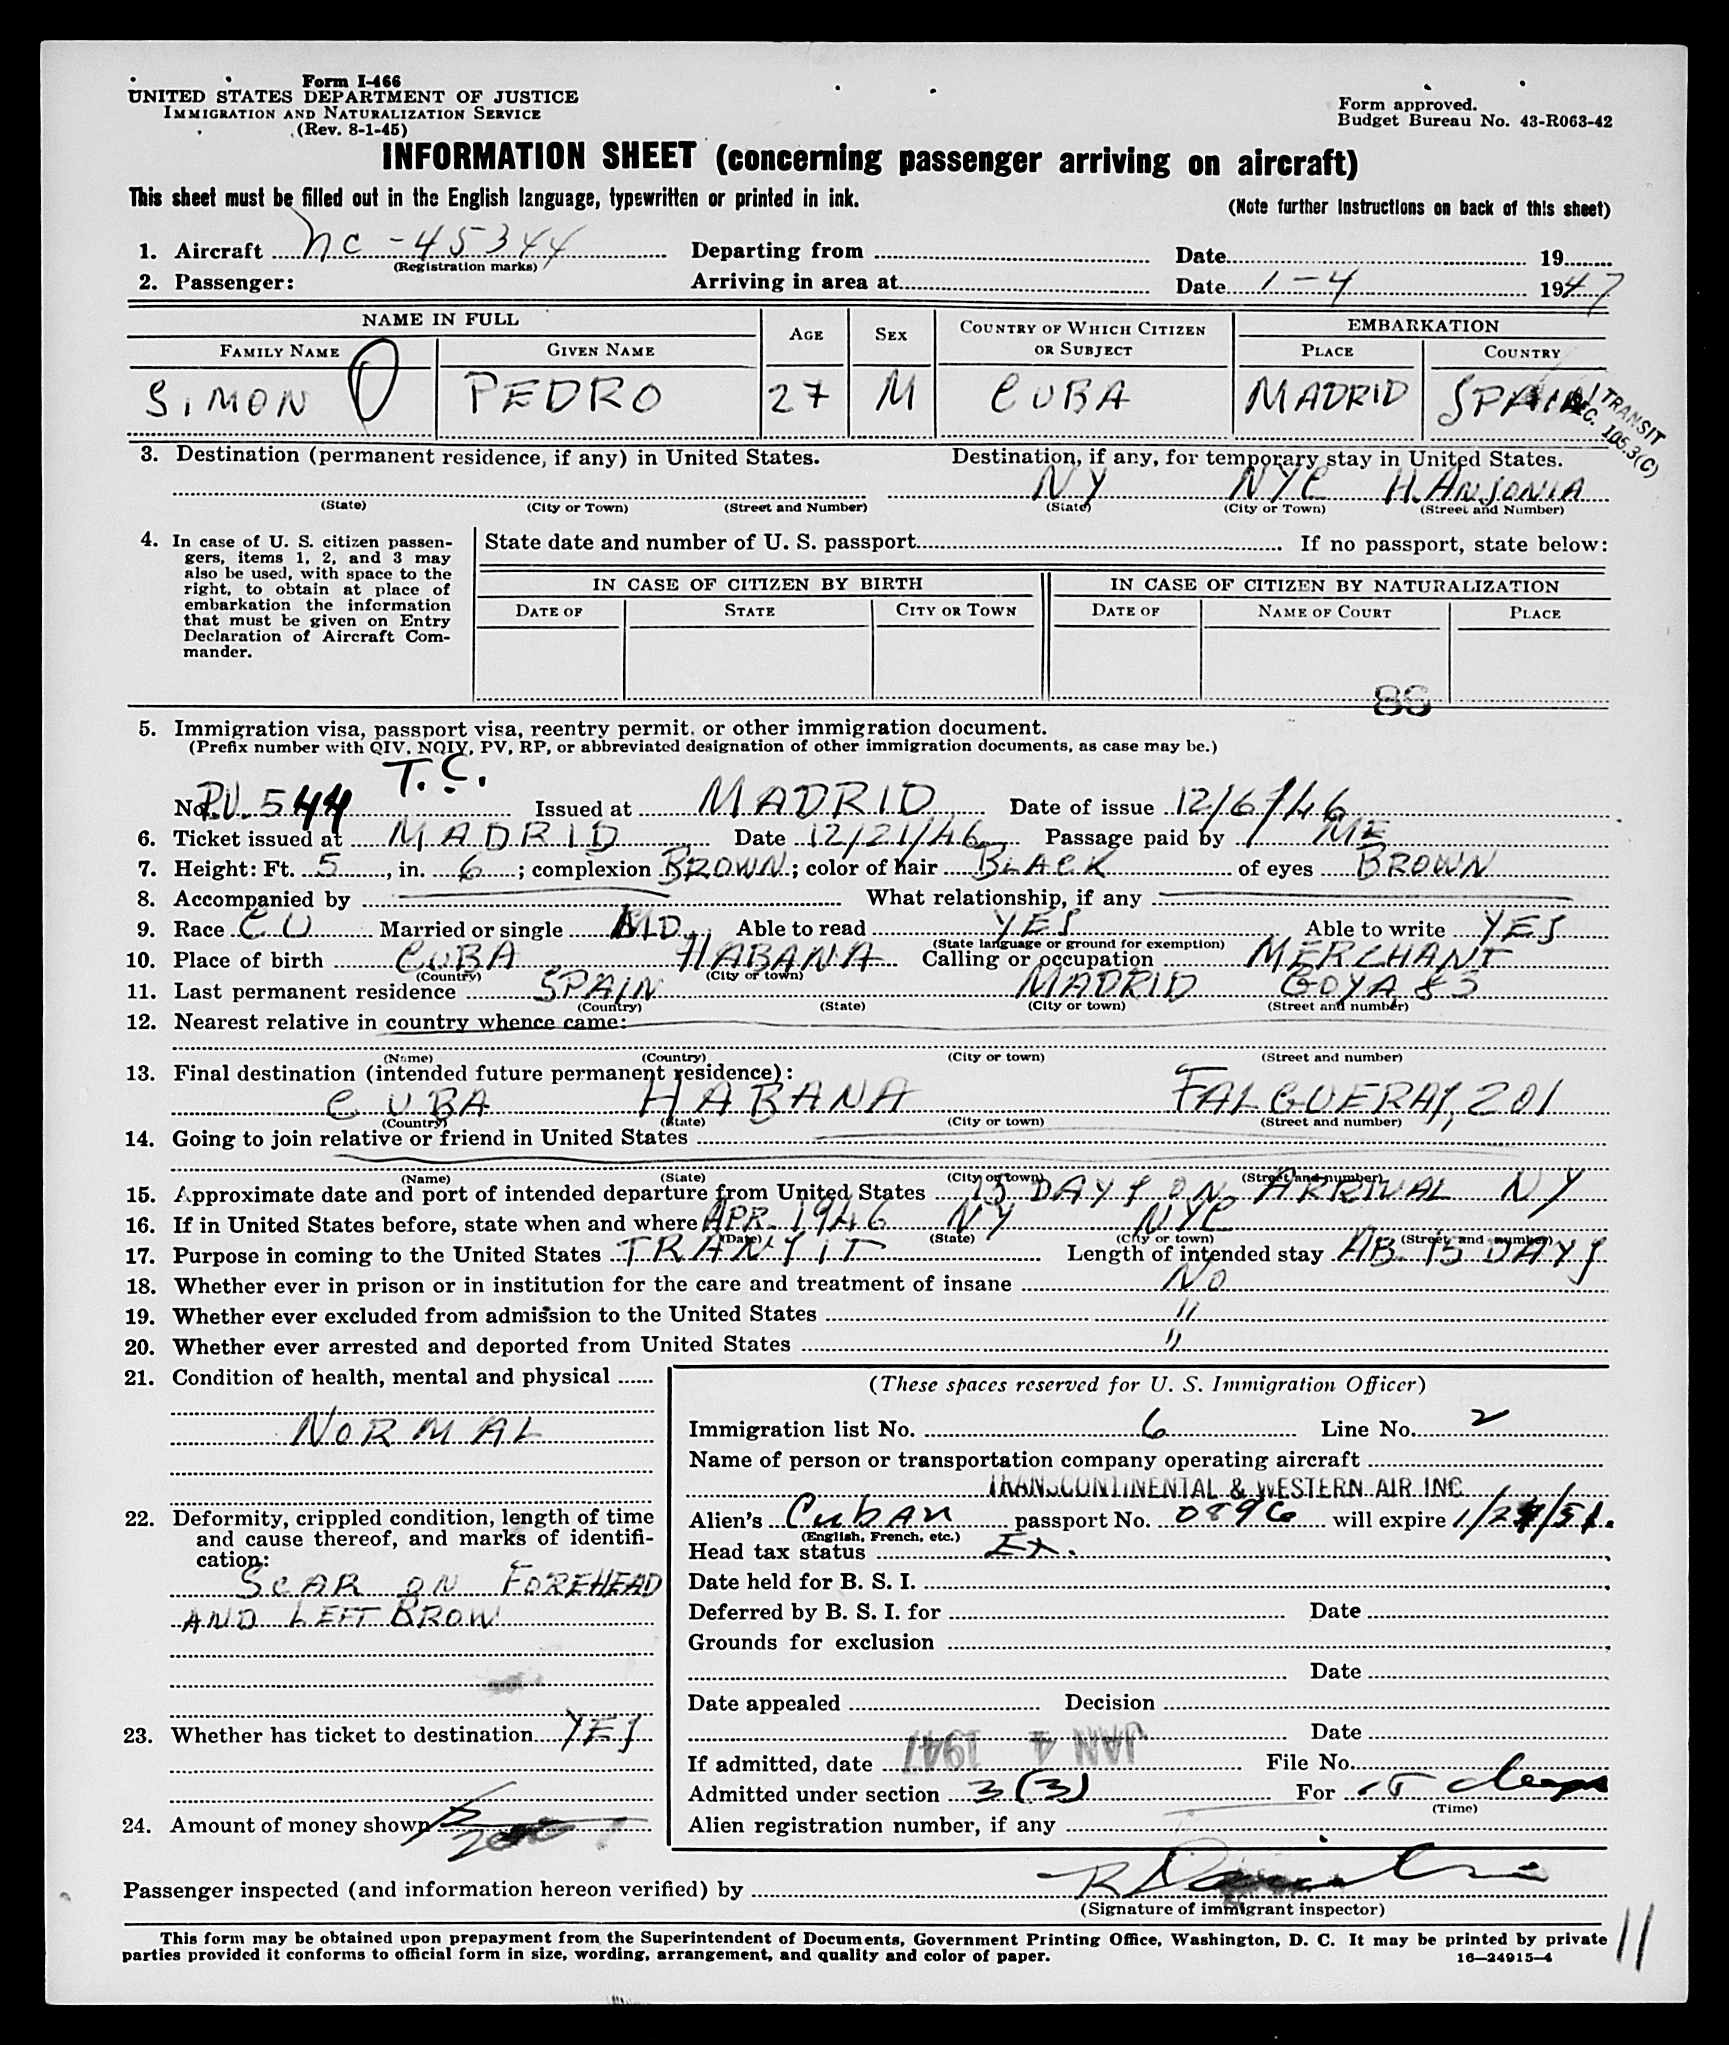 Form I-466
UNITED STATES DEPARTMENT OF JUSTICE
IMMIGRATION AND NATURALIZATION SERVICE
(Rev. 8-1-45)
Form approved.
Budget Bureau No. 43-R063-42
INFORMATION SHEET (concerning passenger arriving on aircraft)
This sheet must be filled out in the English language, typewritten or printed in ink.
(Note further instructions on back of this sheet)
1. Aircraft NC-45344 Departing from Date 19
(Registration marks)
2. Passenger: Arriving in area at Date 1-4 1947
NAME IN FULL AGE SEX COUNTRY OF WHICH CITIZEN OR SUBJECT EMBARKATION
FAMILY NAME GIVEN NAME PLACE COUNTRY
SIMON PEDRO 27 M CUBA MADRID SPAIN
TRANSIT
SEC. 105.3(C)
3. Destination (permanent residence, if any) in United States. Destination, if any, for temporary stay in United States.
NY NYC H. ANSONIA
(State) (City or Town) (Street and Number) (State) (City or Town) (Street and Number)
4. In case of U. S. citizen passen-
gers, items 1, 2, and 3 may
also be used, with space to the
right, to obtain at place of
embarkation the information
that must be given on Entry
Declaration of Aircraft Com-
mander.
State date and number of U. S. passport If no passport, state below:
IN CASE OF CITIZEN BY BIRTH IN CASE OF CITIZEN BY NATURALIZATION
DATE OF STATE CITY OR TOWN DATE OF NAME OF COURT PLACE
86
5. Immigration visa, passport visa, reentry permit, or other immigration document.
(Prefix number with QIV, NQIV, PV, RP, or abbreviated designation of other immigration documents, as case may be.)
T.C.
No. P.V. 544 Issued at MADRID Date of issue 12/6/46
6. Ticket issued at MADRID Date 12/21/46 Passage paid by ME
7. Height: Ft. 5, in. 6; complexion BROWN; color of hair BLACK of eyes BROWN
8. Accompanied by What relationship, if any
9. Race CU Married or single MD. Able to read YES Able to write YES
(State language or ground for exemption)
10. Place of birth CUBA HABANA Calling or occupation MERCHANT
(Country) (City or town)
11. Last permanent residence SPAIN MADRID GOYA, 83
(Country) (State) (City or town) (Street and number)
12. Nearest relative in country whence came:
(Name) (Country) (City or town) (Street and number)
13. Final destination (intended future permanent residence):
CUBA HABANA FALGUERAS, 201
(Country) (State) (City or town) (Street and number)
14. Going to join relative or friend in United States
(Name) (State) (City or town) (Street and number)
15. Approximate date and port of intended departure from United States 15 DAYS ON ARRIVAL NY
16. If in United States before, state when and where APR. 1946 NY NYC
(Date) (State) (City or town) (Street and number)
17. Purpose in coming to the United States TRANSIT Length of intended stay AB. 15 DAYS
18. Whether ever in prison or in institution for the care and treatment of insane NO
19. Whether ever excluded from admission to the United States "
20. Whether ever arrested and deported from United States "
21. Condition of health, mental and physical
NORMAL
22. Deformity, crippled condition, length of time
and cause thereof, and marks of identifi-
cation:
SCAR ON FOREHEAD
AND LEFT BROW
23. Whether has ticket to destination YES
24. Amount of money shown
(These spaces reserved for U. S. Immigration Officer)
Immigration list No. 6 Line No. 2
Name of person or transportation company operating aircraft
TRANSCONTINENTAL & WESTERN AIR INC
Alien's Cuban passport No. 0896 will expire
(English, French, etc.)
Head tax status Ex.
Date held for B. S. I.
Deferred by B. S. I. for Date
Grounds for exclusion
Date
Date appealed Decision
Date
If admitted, date JAN 4 1947 File No.
Admitted under section 3(3) For
(Time)
Alien registration number, if any
Passenger inspected (and information hereon verified) by
(Signature of immigrant inspector)
This form may be obtained upon prepayment from the Superintendent of Documents, Government Printing Office, Washington, D. C. It may be printed by private
parties provided it conforms to official form in size, wording, arrangement, and quality and color of paper.
16—24915-4
11